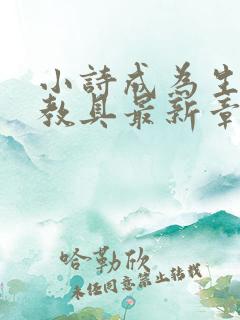 小詩成為生
教具最新章
哈勒欣
未經同意禁止轉載